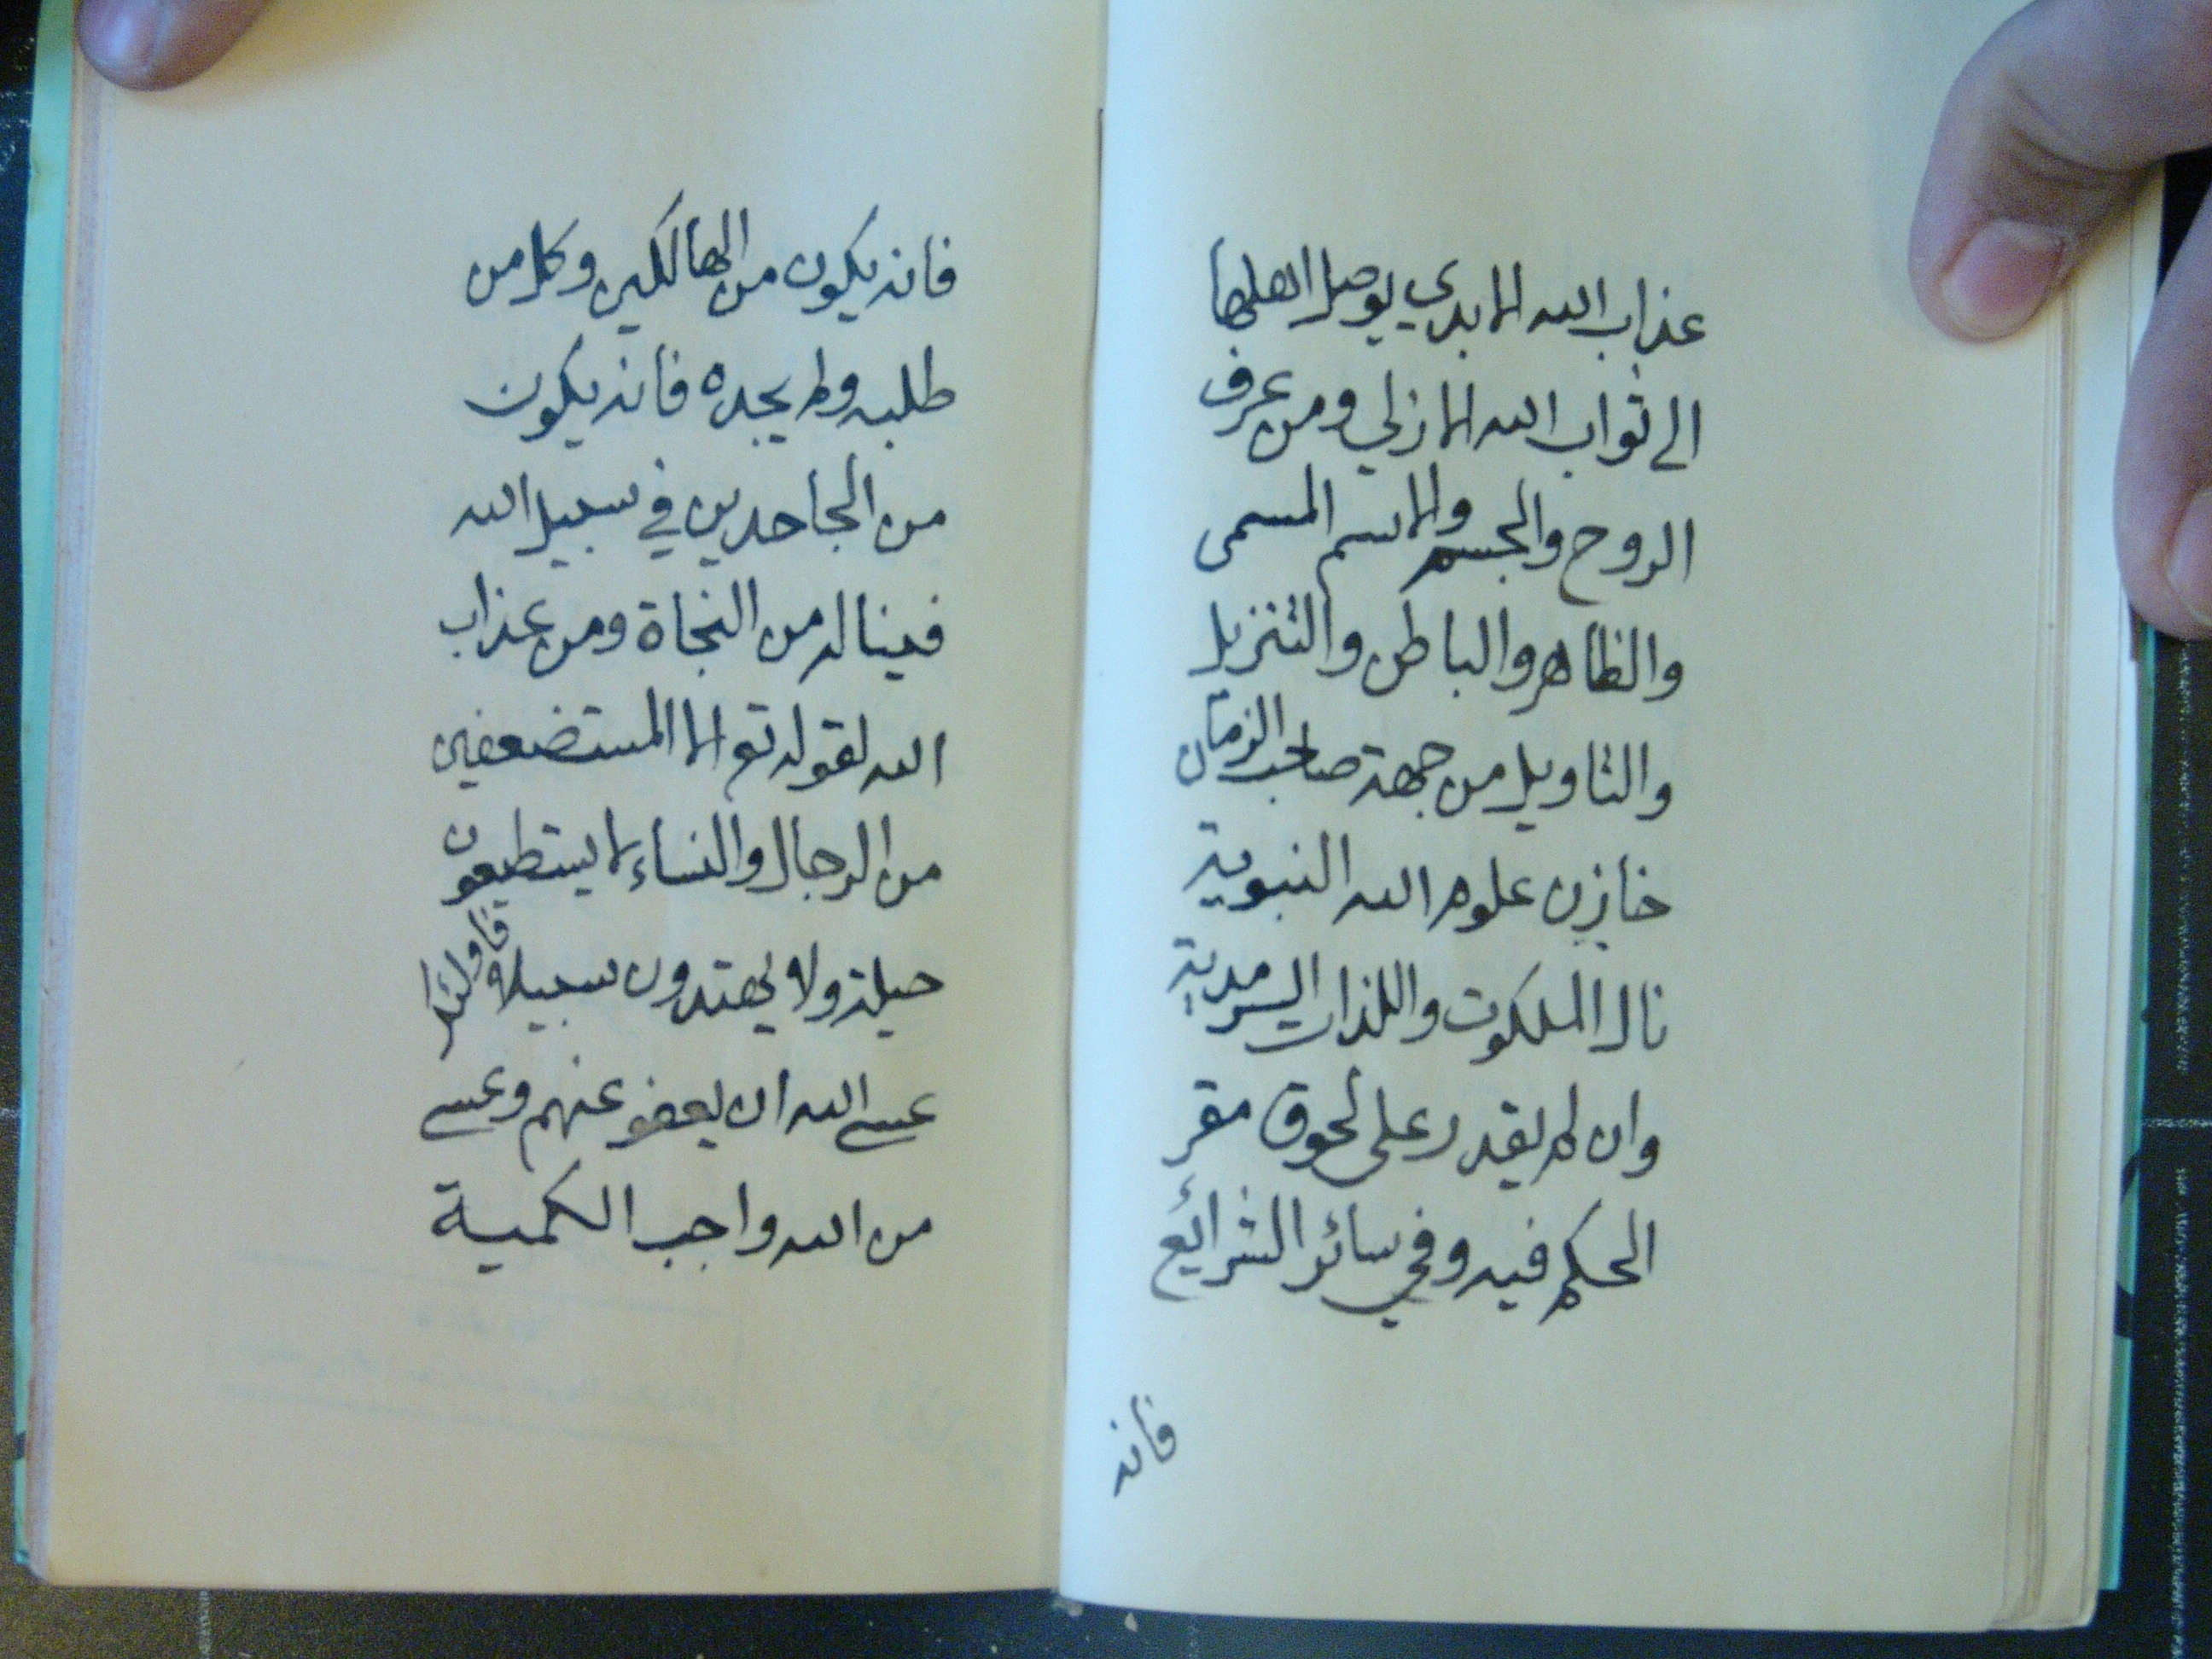 عذاب الله الابدي يوصل اهلها
الى ثواب الله الازلي ومن عرف
الروح والجسم والاسم المسمى
والظاهر والباطن والتنزيل
والتاويل من جهة صاحب الزمان
خازن علوم الله النبوية
نال الملكوت واللذات السرمدية
وان لم يقدر على لحوق مقر
الحكم فيه وفي سائر الشرائع
فانه
فانه يكون من الهالكين وكل من
طلبه ولم يجده فانه يكون
من الجاحدين في سبيل الله
فينا له من النجاة ومن عذاب
الله لقوله تع الا المستضعفين
من الرجال والنساء لا يستطيعون
حيلة ولا يهتدون سبيلا فاولئك
عسى الله ان يعفو عنهم وعسى
من الله واجب الكمية